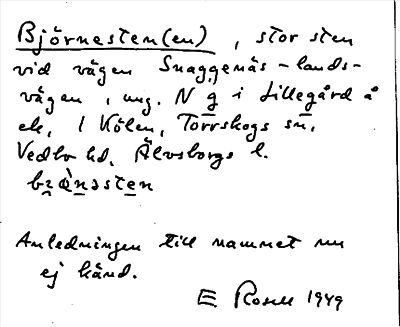 Björnesten(en), stor sten
vid vägen Snaggenäs-lands-
vägen, ung. N g i Lillegård å
ek, 1 Kölen, Torrskogs sn,
Vedbo hd, Älvsborgs l.
Anledningen till namnet nu
ej känd.
E. 1949